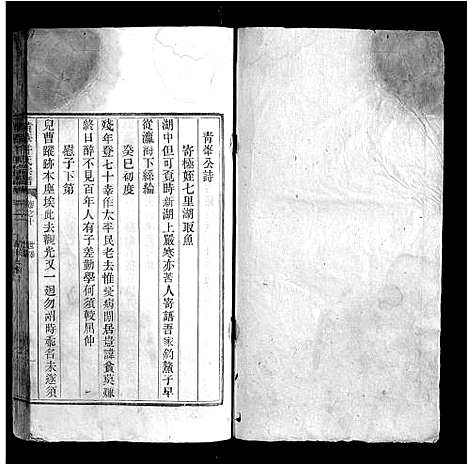 青峯公詩
寄極姪七里湖取魚
湖中但可竟時新湖上嚴寒亦苦人寄語吾家釣鰲子早
從瀛海下絲綸
癸巳初度
殘年登七十幸作太平民老去惟愁病閒居豈諱貧莫嫌
終日醉不見百年人有子差勤學何須較屈伸
慰子下第
兒曹蹤跡本塵埃此去觀光又一廻勿謂時乖名未遂須